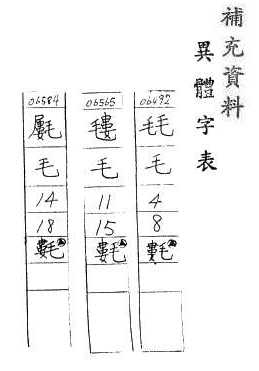 補充資料
異體字表
06492
毛
4
8
氀
06565
毛
11
15
氀
06584
毛
14
18
氀